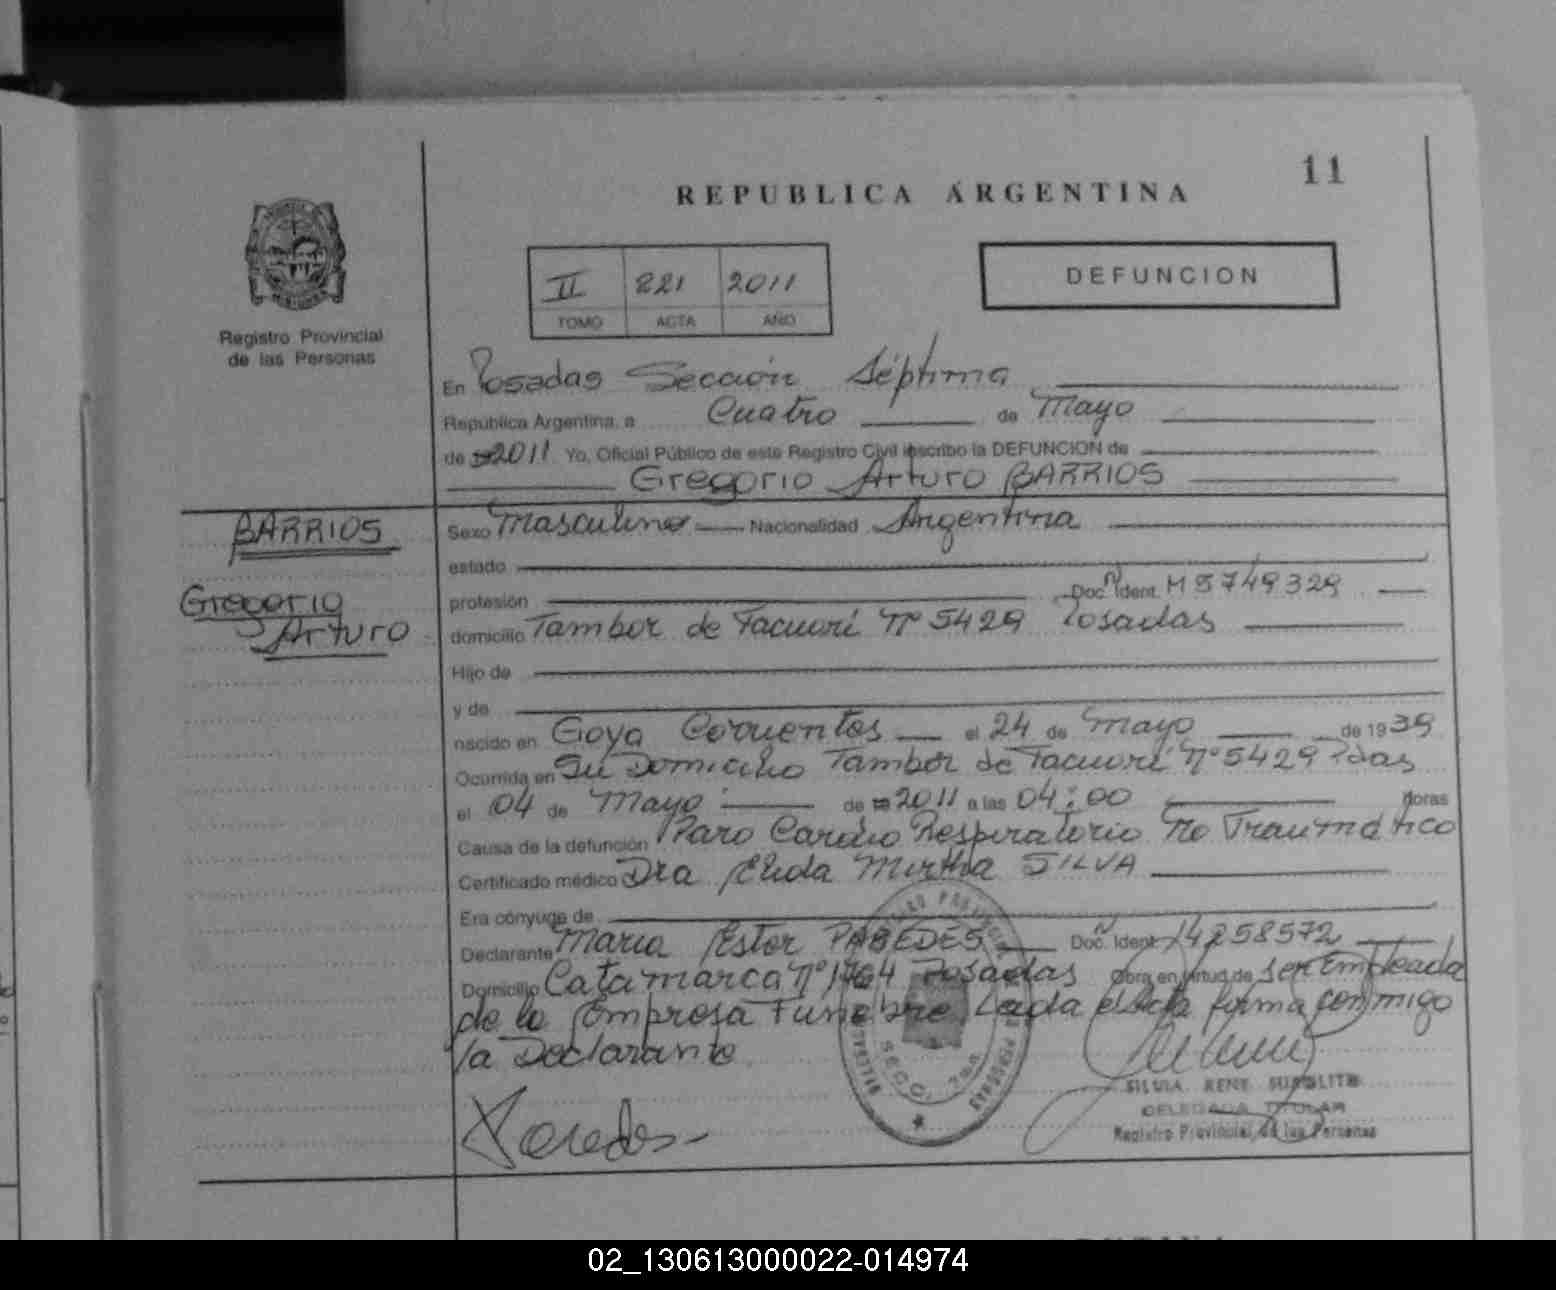 11
REPUBLICA ARGENTINA
II 221 2011
TOMO ACTA AÑO
DEFUNCION
Registro Provincial
de las Personas
En Posadas Sección Séptima
República Argentina, a Cuatro de Mayo
de 2011 Yo, Oficial Público de este Registro Civil inscribo la DEFUNCION de
Gregorio Arturo BARRIOS
BARRIOS
Gregorio
Arturo
Sexo Masculino Nacionalidad Argentina
estado
profesión Doc. Ident. M 5749329
domicilio Tambor de Tacuarí Nº 5429 Posadas
Hijo de
y de
nacido en Goya Corrientes el 24 de Mayo de 1939
Ocurrida en Su Domicilio Tambor de Tacuarí Nº 5429 Pdas
el 04 de Mayo de 2011 a las 04:00 horas
Causa de la defunción Paro Cardio Respiratorio No Traumático
Certificado médico Dra Elida Mirtha SILVA
Era cónyuge de
Declarante Maria Ester PAREDES Doc. Ident. 14258572
Domicilio Catamarca Nº 1764 Posadas Obra en virtud de ser Empleada
de la Empresa Funebre Leida el acta firma conmigo
la Declarante
Paredes
SECC. 7ma
SILVIA RENE
DELEGADA TITULAR
Registro Provincial de las Personas
02_130613000022-014974